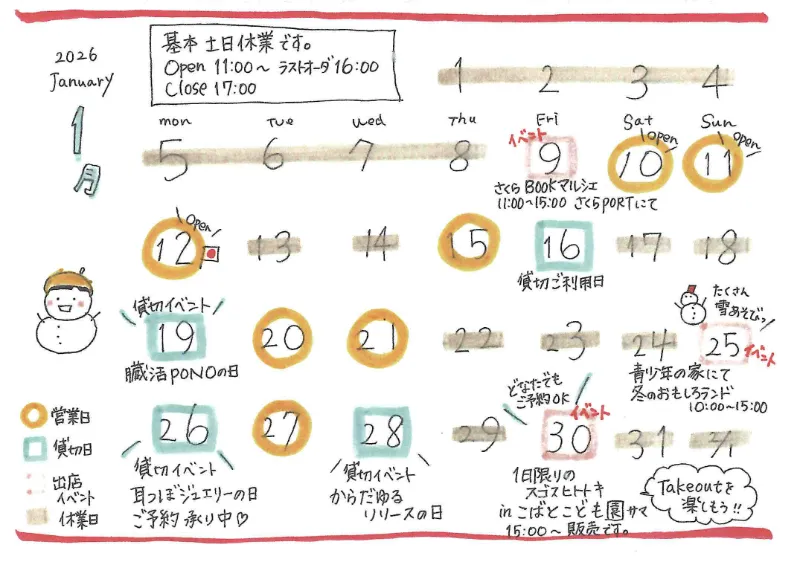 2026
January
1
月
基本 土日休業です。
Open 11:00〜 ラストオーダ16:00
Close 17:00
1 2 3 4
mon Tue Wed Thu Fri Sat Sun
イベント open open
5 6 7 8 9 10 11
さくらBOOKマルシェ
11:00〜15:00 さくらPORTにて
open
12 13 14 15 16 17 18
貸切ご利用日
貸切イベント
たくさん
雪あそびっ
19 20 21 22 23 24 25
イベント
臓活PONOの日
青少年の家にて
冬のおもしろランド
10:00〜15:00
どなたでも
ご予約OK
イベント
26 27 28 29 30 31 2/1
貸切イベント
耳つぼジュエリーの日
ご予約承り中♡
貸切イベント
からだゆる
リリースの日
1日限りの
スゴスヒトトキ
inこばとこども園サマ
15:00〜販売です。
Takeoutを
楽しもう!!
営業日
貸切日
出店
イベント
休業日